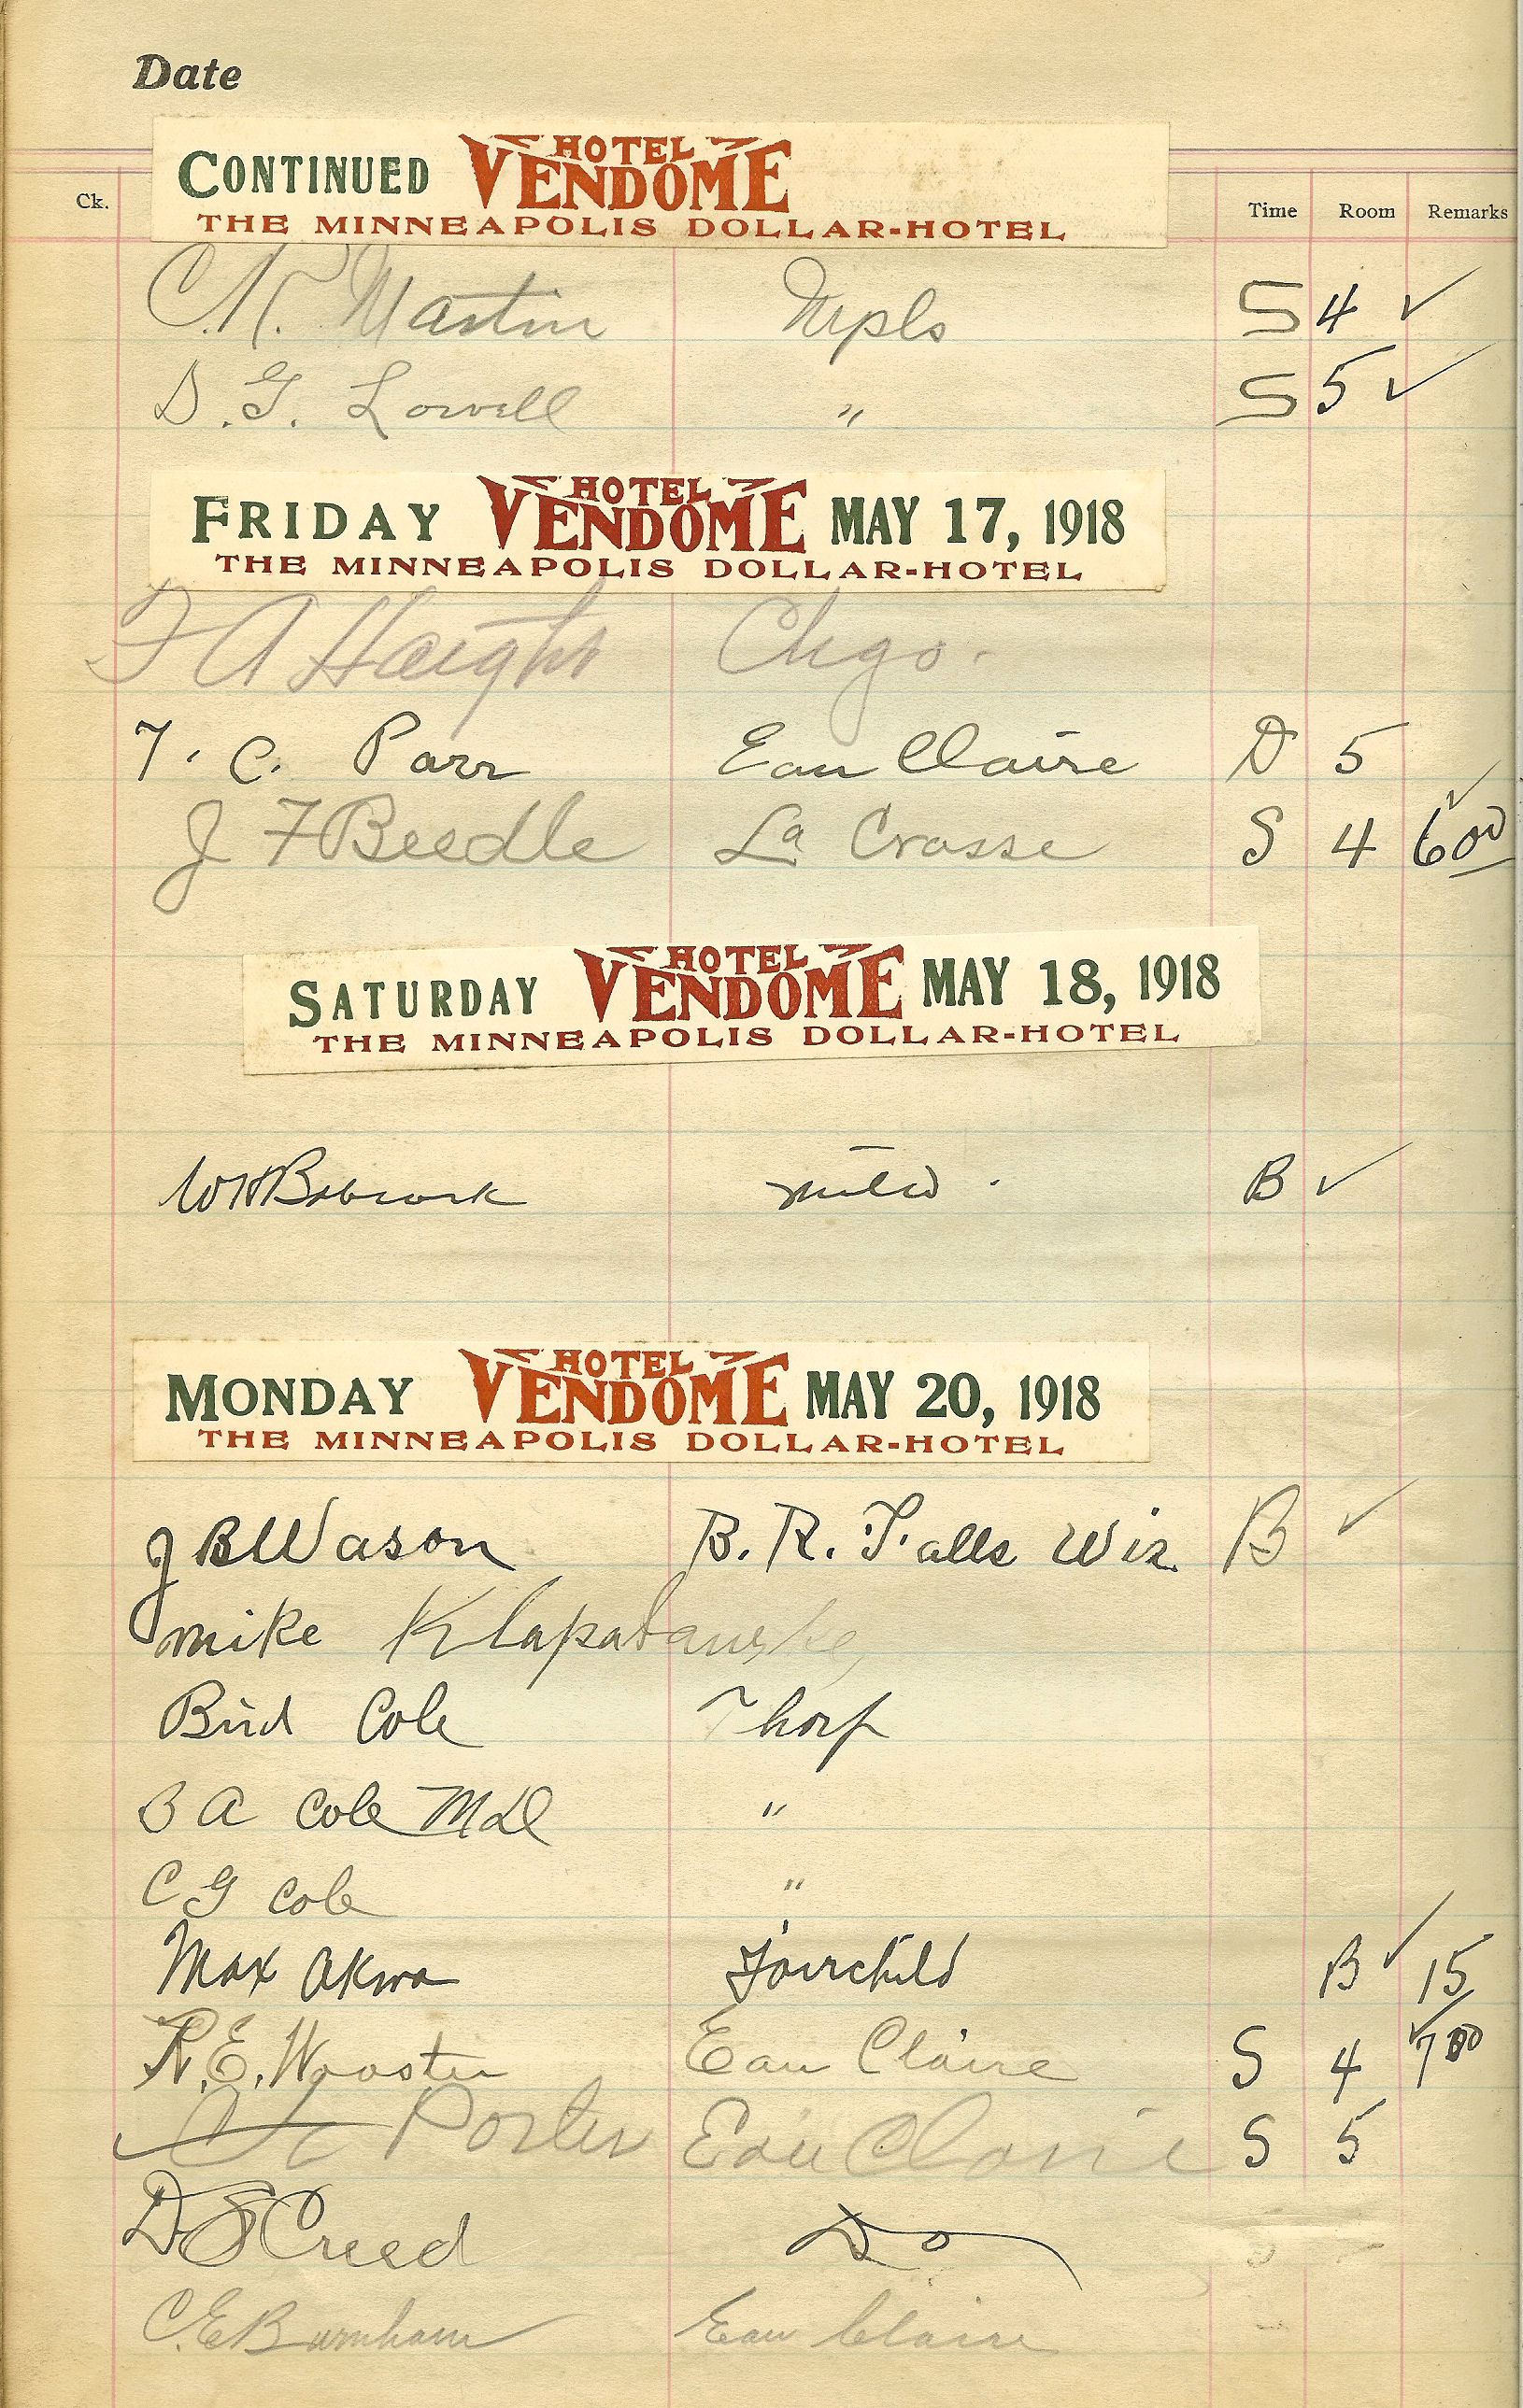 Date
CONTINUED HOTEL VENDOME
THE MINNEAPOLIS DOLLAR-HOTEL
Ck. Time Room Remarks
C. N. Martin Mpls S 4 ✓
D. G. Lowell " S 5 ✓
FRIDAY HOTEL VENDOME MAY 17, 1918
THE MINNEAPOLIS DOLLAR-HOTEL
F A Haight Chgo.
T. C. Parr Eau Claire D 5
J F Beedle La Crosse S 4 ✓ 6 00
SATURDAY HOTEL VENDOME MAY 18, 1918
THE MINNEAPOLIS DOLLAR-HOTEL
W H Babcock B ✓
MONDAY HOTEL VENDOME MAY 20, 1918
THE MINNEAPOLIS DOLLAR-HOTEL
J B Wason B. R. Falls Wis. B ✓
Mike
Bird Cole Thorp
B A Cole "
C G Cole "
Max Fairchild B ✓ 15
R. E. Wooster Eau Claire S 4 ✓ 7 00
Porter Eau Claire S 5
D S Creed Do
C. E. Burnham Eau Claire